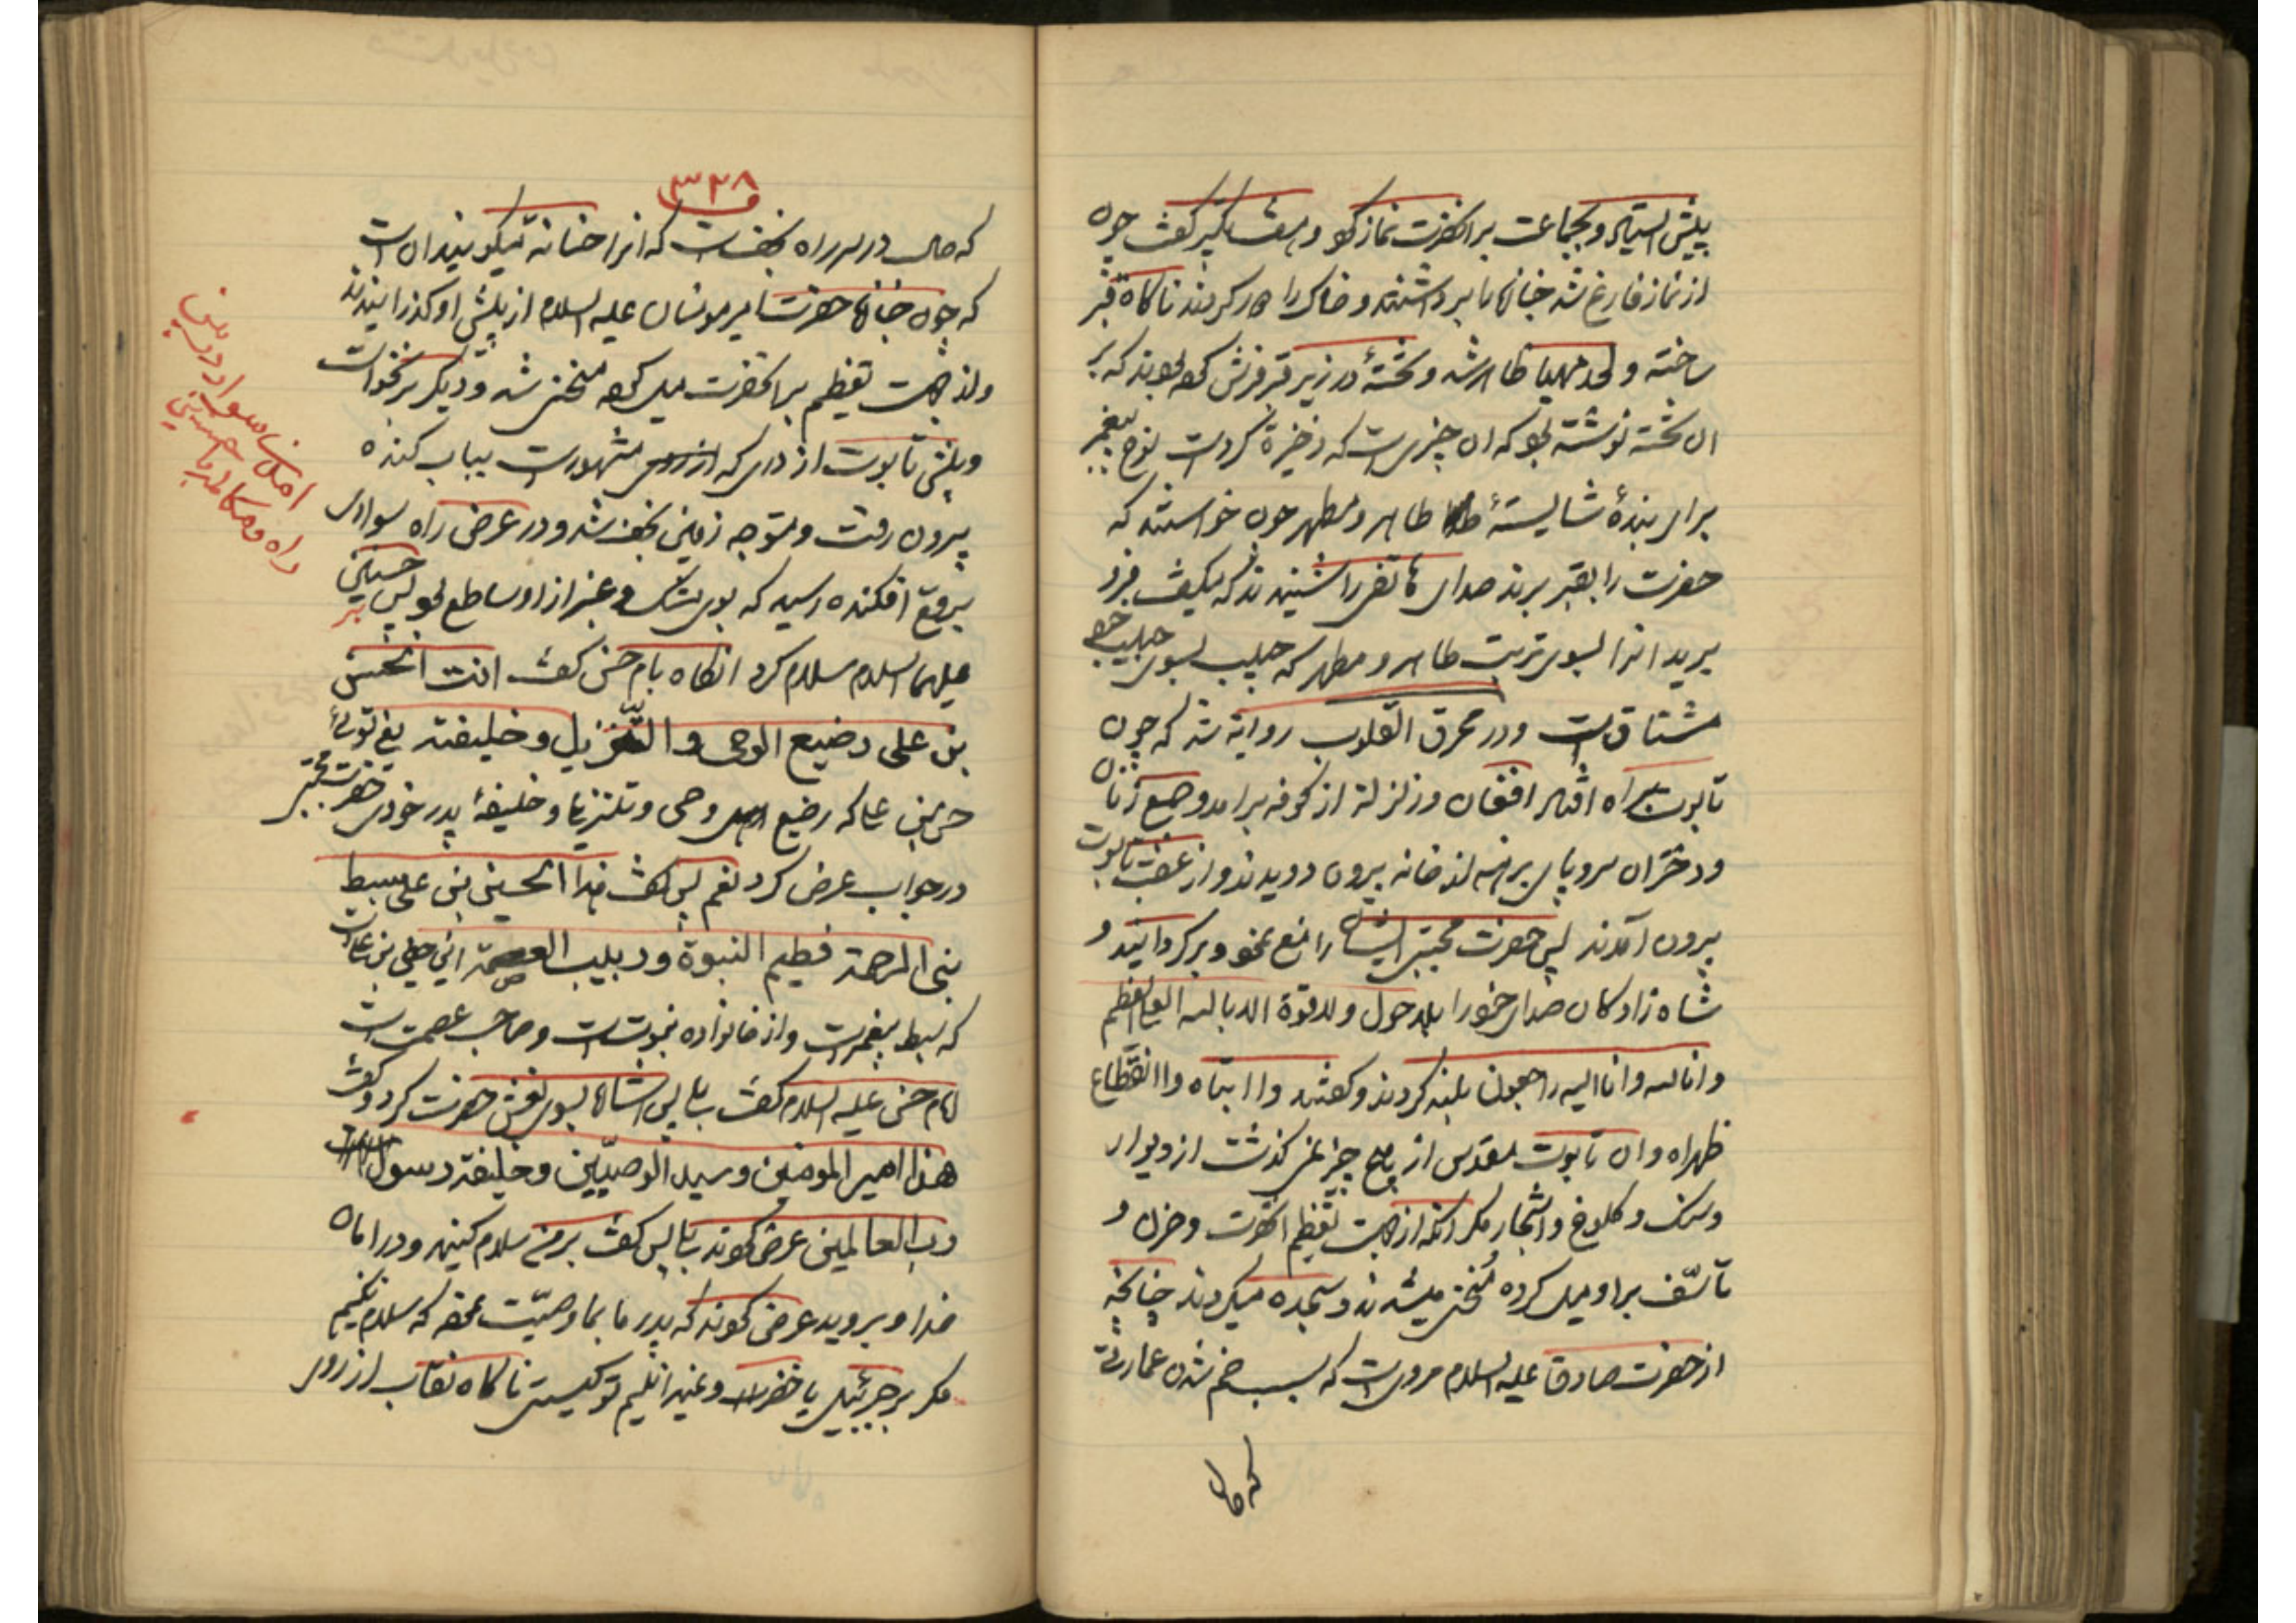 پیش ایستاد و بجماعت بر آنحضرت نماز کرد و هفت تکبیر گفت چون
از نماز فارغ شد جنازه را برداشتند و خاک را دور کردند ناگاه قبر
ساخته و لحد مهیا ظاهر شد و تختهٔ در زیر قبر فرش کرده بودند که بر
ان تخته نوشته بود که ان چیزیست که ذخیره کردست نوح پیغمبر
برای بندهٔ شایستهٔ طاهر و مطهر چون خواستند که
حضرت را بقبر برند صدای هاتفی را شنیدند که میگفت فرو
برید انرا بسوی تربت طاهر و مطهر که حبیب بسوی حبیب خود
مشتاق است و در محرق القلوب روایة شد که چون
تابوت براه افتاد افغان و زلزلة از کوفه برامد و جمیع زنان
و دختران سر و پای برهنه از خانه بیرون دویدند و از عقب تابوت
بیرون آمدند پس حضرت مجتبی ایشان را منع نمود و برگردانید و
شاه زادکان صدای خود را بلا حول ولا قوة الا بالله العلی العظیم
و انا لله و انا الیه راجعون بلند کردند و گفتند وا ابتاه وا انقطاع
ظهراه و ان تابوت مقدس از هیچ چیز نمی گذشت از دیوار
و سنک و کلوخ و اشجار مکر انکه از جهت تعظیم انحضرت و حزن و
تاسّف بر او میل کرده منحنی میشدند و سجده میکردند چنانچه
از حضرت صادق علیه السلام مرویست که سبب خم شدن عمارتی
که حال
٣٢٨
که حال در سر راه نجف است که انرا حنانه میکویند ان است
که چون جنازه حضرت امیر مومنان علیه السلام از پیش او کذرانیدند
و از جهت تعظیم بر انحضرت میل کرده منحنی شد و دیگر برنخواست
و پیش تابوت از دری که مشهور است بباب کنده
بیرون رفت و متوجه زمین نجف شد و در عرض راه سواری
برقع افکنده رسید که بوی مشک و عنبر از او ساطع بود پس بر حسنین
علیهما السلام سلام کرد انکاه بامام حسن کفت انت الحسن
بن علی رضیع الوحی و التنزیل و خلیفته یعنی توئی
حسن بن علی که رضیع وحی و تنزیل و خلیفهٔ پدر خودی حضرت مجتبی
در جواب عرض کرد نعم پس کفت هذا الحسین بن علی سبط
نبی الرحمة فطیم النبوة و ربیب العصمة این حسین بن علی است
که سبط پیغمبر است و از خانواده نبوتست و صاحب عصمت است
امام حسن علیه السلام کفت بلی پس اشاره بسوی نعش حضرت کرد و کفت
هذا امیر المومنین و سید الوصیین و خلیفة رسول
رب العالمین عرض کردند بلی پس کفت بر من سلام کنید و در امان
خدا بروید عرض کردند که پدر ما بما وصیّت نموده که سلام نکنیم
مکر بر جبرئیل یا خضر و نمیدانیم تو کیستی ناکاه نقاب از روی
امدن سوار در بین
راه و مکالمه با حسنین